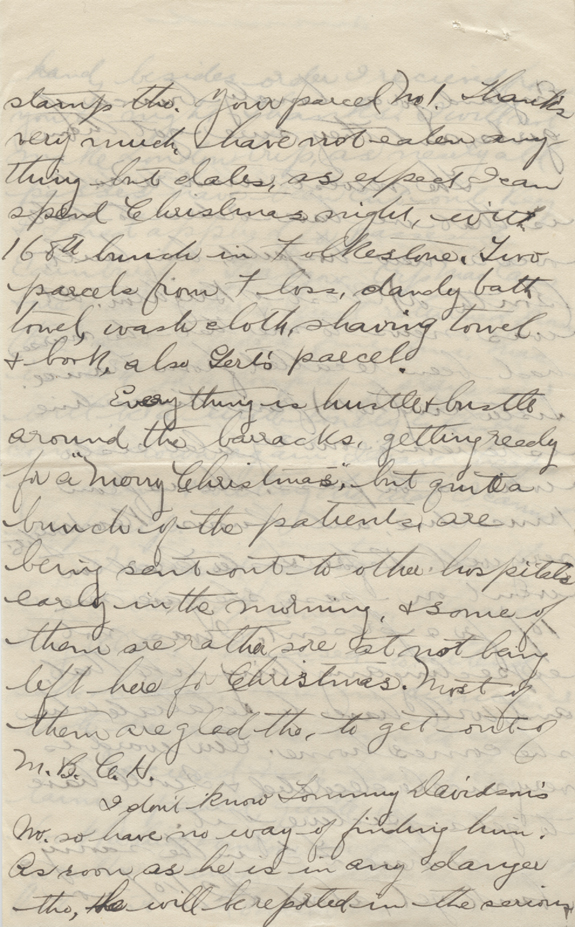 stamp tho. Your parcel No1. Thanks
very much, have not eaten any-
thing but dates, as expect I can
spend Christmas night, with
168th bunch in Folkestone. Two
parcels from Floss, dandy bath
towel, wash cloth, shaving towel.
& book, also Gert's parcel.
Everything is hustle & bustle
around the barracks, getting ready
for a "Merry Christmas", but quite a
bunch of the patients, are
being sent out to other hospitals
early in the morning, & some of
them are rather sore at not being
left here for Christmas. Most of
them are glad tho, to get out of
M. B. C. H.
I don't know Tommy Davidson's
No. so have no way of finding him.
As soon as he is in any danger
tho, he will be reported in the serious